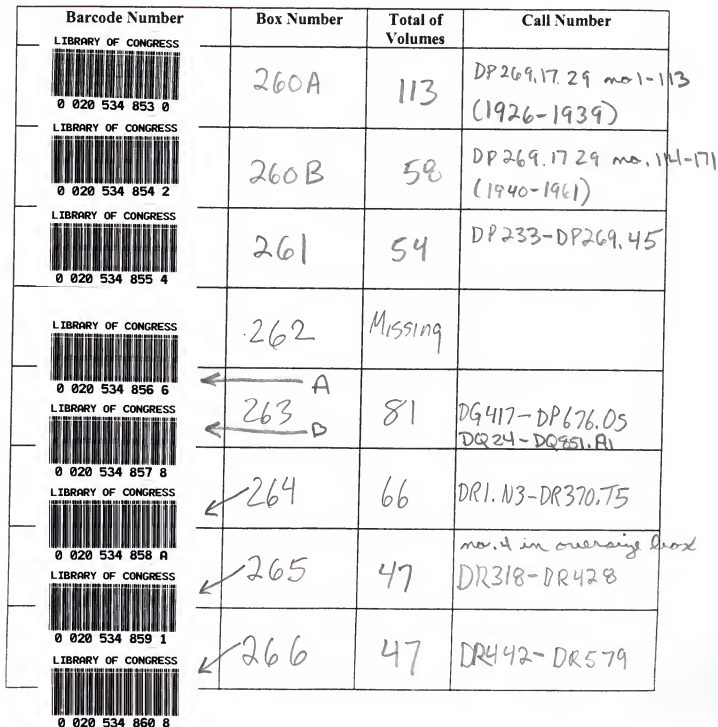 Barcode Number Box Number Total of Volumes Call Number
LIBRARY OF CONGRESS
0 020 534 853 0
260A 113 DP269.17.29 no 1-113
(1926-1939)
LIBRARY OF CONGRESS
0 020 534 854 2
260B 58 DP269.17 29 no. 114-171
(1940-1961)
LIBRARY OF CONGRESS
0 020 534 855 4
261 54 DP233-DP269.45
LIBRARY OF CONGRESS
0 020 534 856 6
262 Missing
A
LIBRARY OF CONGRESS
0 020 534 857 8
263 81 DG417-DP676.05
B DQ24-DQ851.A1
LIBRARY OF CONGRESS
0 020 534 858 A
264 66 DR1.N3-DR370.T5
no. 4 in oversize box
LIBRARY OF CONGRESS
0 020 534 859 1
265 47 DR318-DR428
LIBRARY OF CONGRESS
0 020 534 860 8
266 47 DR442-DR579